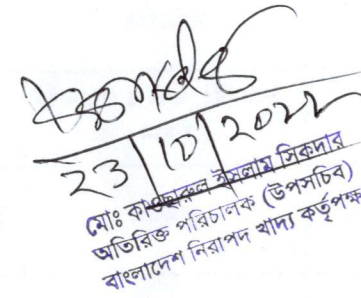 23|10|2022
মোঃ কাওছারুল ইসলাম সিকদার
অতিরিক্ত পরিচালক (উপসচিব)
বাংলাদেশ নিরাপদ খাদ্য কর্তৃপক্ষ